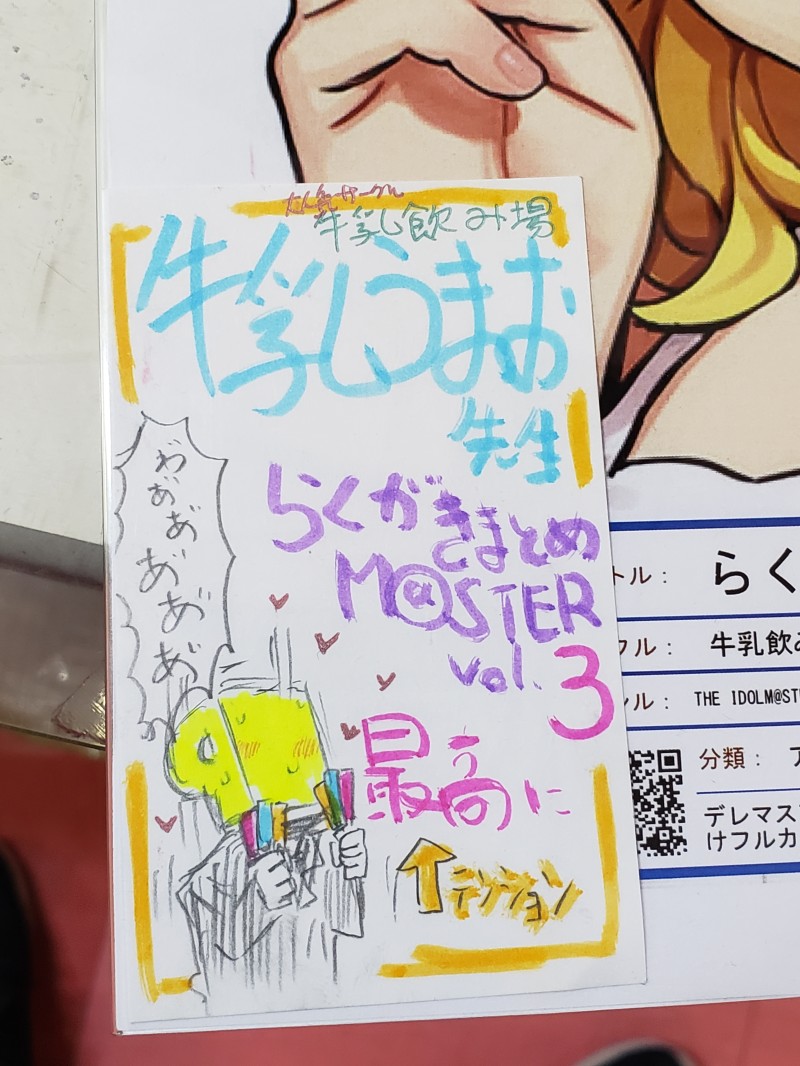 大人気サークル
牛乳飲み場
牛乳うまお
先生
らくがきまとめ
M@STER
vol.3
最高に
↑テンション
わあ゙あ゙あ゙あ゙あ゙
トル： らく
クル： 牛乳飲み
ンル： THE IDOLM@ST
分類： ア
デレマス
けフルカ